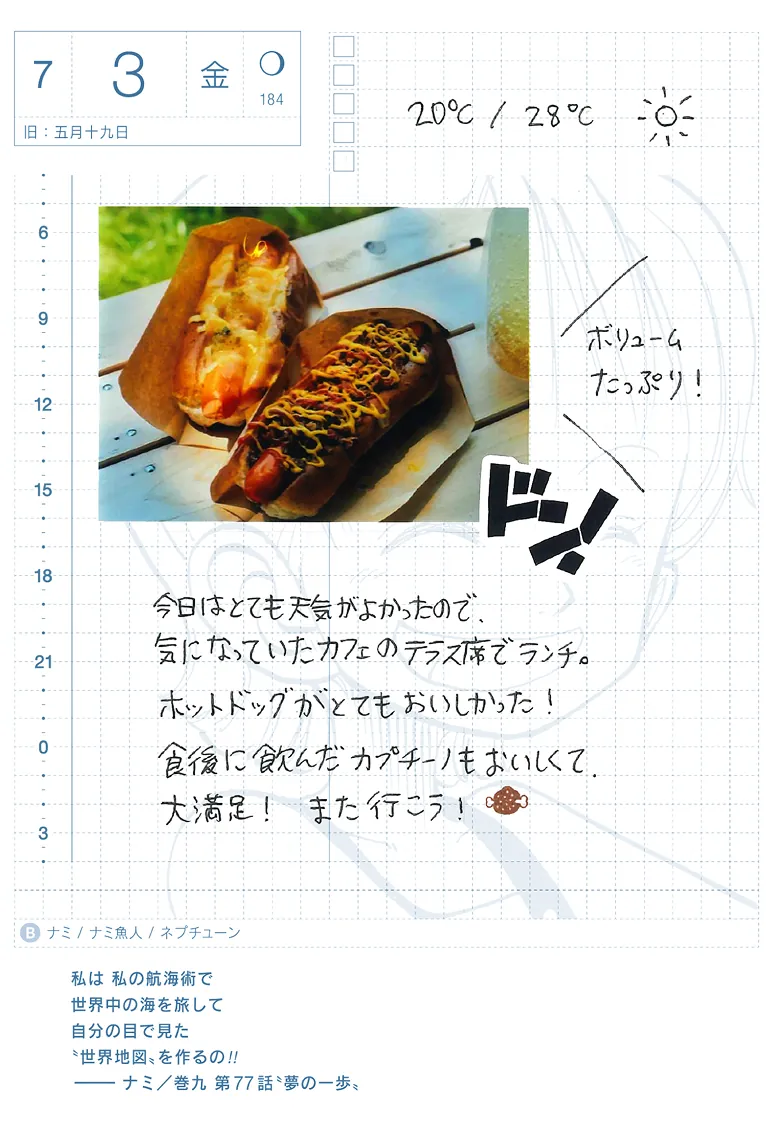 7 3 金
184
旧：五月十九日
20℃ / 28℃
6
9
12
15
18
21
0
3
ボリューム
たっぷり！
ドン
今日はとても天気がよかったので、
気になっていたカフェのテラス席でランチ。
ホットドッグがとてもおいしかった！
食後に飲んだカプチーノもおいしくて、
大満足！ また行こう！
B ナミ / ナミ魚人 / ネプチューン
私は 私の航海術で
世界中の海を旅して
自分の目で見た
〝世界地図〟を作るの!!
―― ナミ／巻九 第77話〝夢の一歩〟